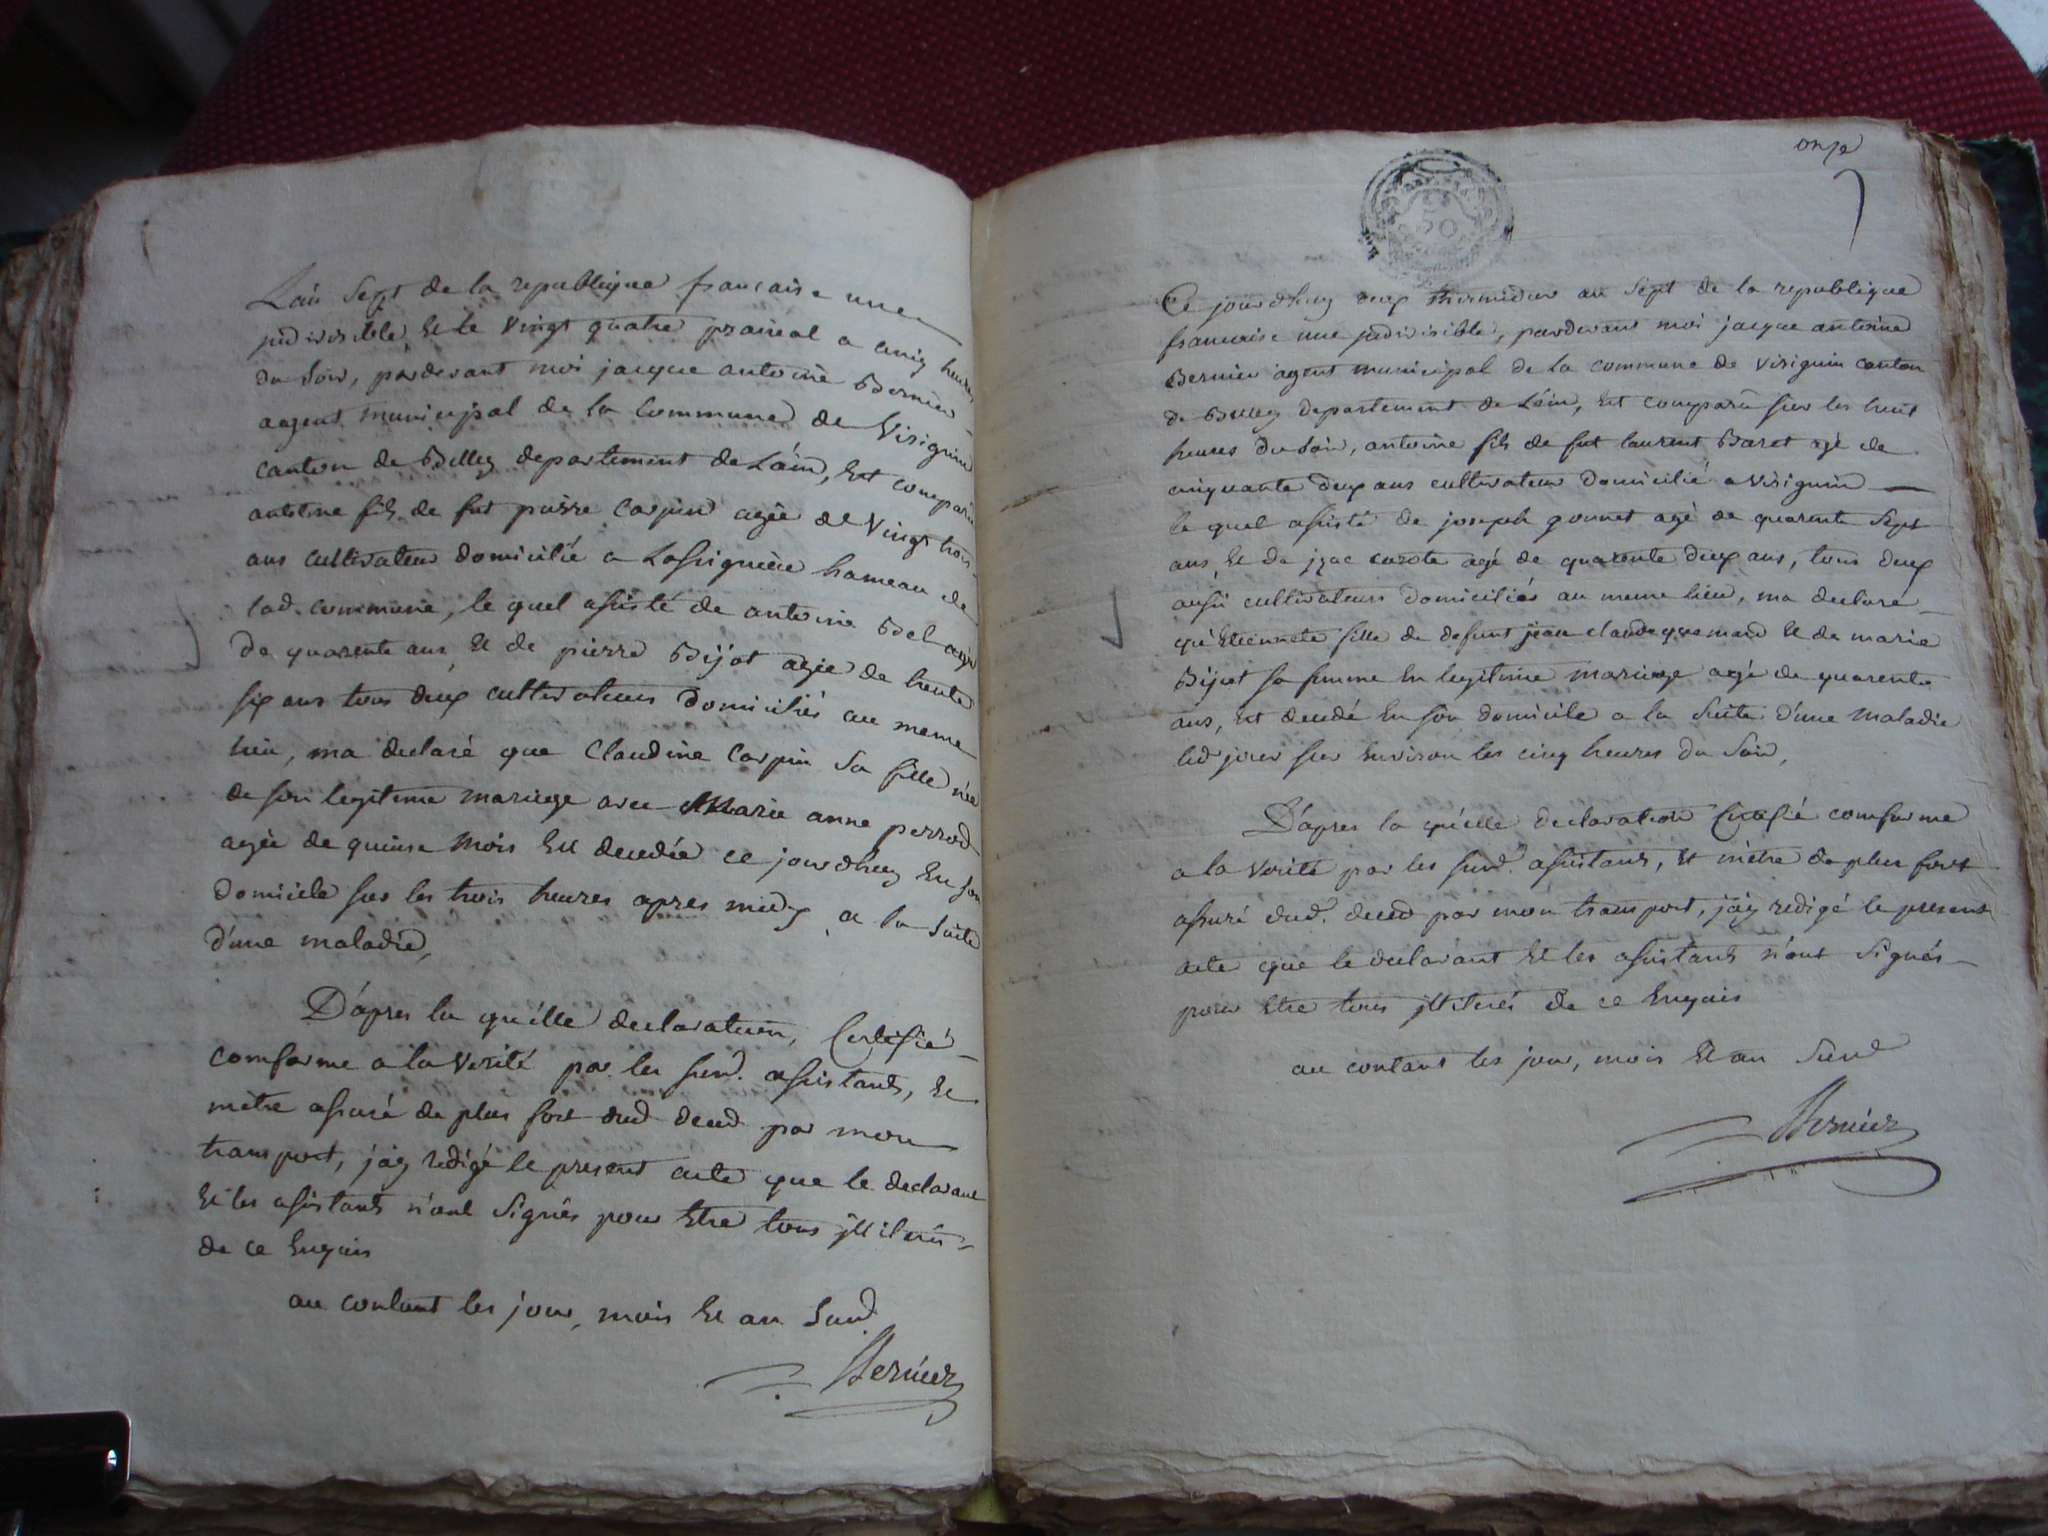 L'an Sept de la republique francaise une
jndivisible, Et le Vingt quatre prairial a cinq heures
du Soir, pardevant moi jacque antoine Bernier
agent municipal de la Commune de Virignin
canton de Belley departement de L'ain, Est comparu
antoine fils de fut pierre Carpin agée de Vingt trois
ans cultivateur domicilié a Lassignieu hameau de
lad. commune, le quel assisté de antoine Bel agé
de quarente ans, Et de pierre Bijot agée de trente
six ans tous deux cultivateurs domiciliés au meme
lieu, ma declaré que Claudine Carpin Sa fille née
de son legitime mariage avec Marie anne perrod
agée de quinse mois Est decedée ce jourdhuy En son
domicile sur les trois heures apres midy, a la Suite
d'une maladie,
D'apres la qu'elle declaration, Certifié
comforme a la Verité par les susd. assistants, Et
m'etre assuré de plus fort dud deced par mon
transport, j'ay redigé le present acte que le declarant
Et les assistants n'ont Signés pour Etre tous jlliterés
de ce Enquis
au contant les jour, mois Et an Susd
Bernier
onze
50
Ce jourdhuy deux thermidor an Sept de la republique
francaise une jndivisible, pardevant moi jacque antoine
Bernier agent municipal de la commune de Virignin canton
de Belley departement de L'ain, Est comparu sur les huit
heures du Soir, antoine fils de fut laurent Baret agé de
cinquante deux ans cultivateur domicilié a Virignin
le quel assisté de joseph gonnet agé de quarente Sept
ans, Et de jzac agé de quarente deux ans, tous deux
aussi cultivateurs domiciliés au meme lieu, ma declaré
qu'Etiennete fille de defunt jean claude et de marie
Bijot sa femme En legitime mariage agé de quarente
ans, Est decedé En son domicile a la Suite d'une maladie
led jour sur Environ les cinq heures du Soir,
D'apres la qu'elle declaration Certifié comforme
a la Verité par les susd. assistants, Et m'etre de plus fort
assuré dud. deced par mon transport, j'ay redigé le present
acte que le declarant Et les assistants n'ont Signés
pour Etre tous jlliterés de ce Enquis
au contant les jour, mois Et an Susd
Bernier